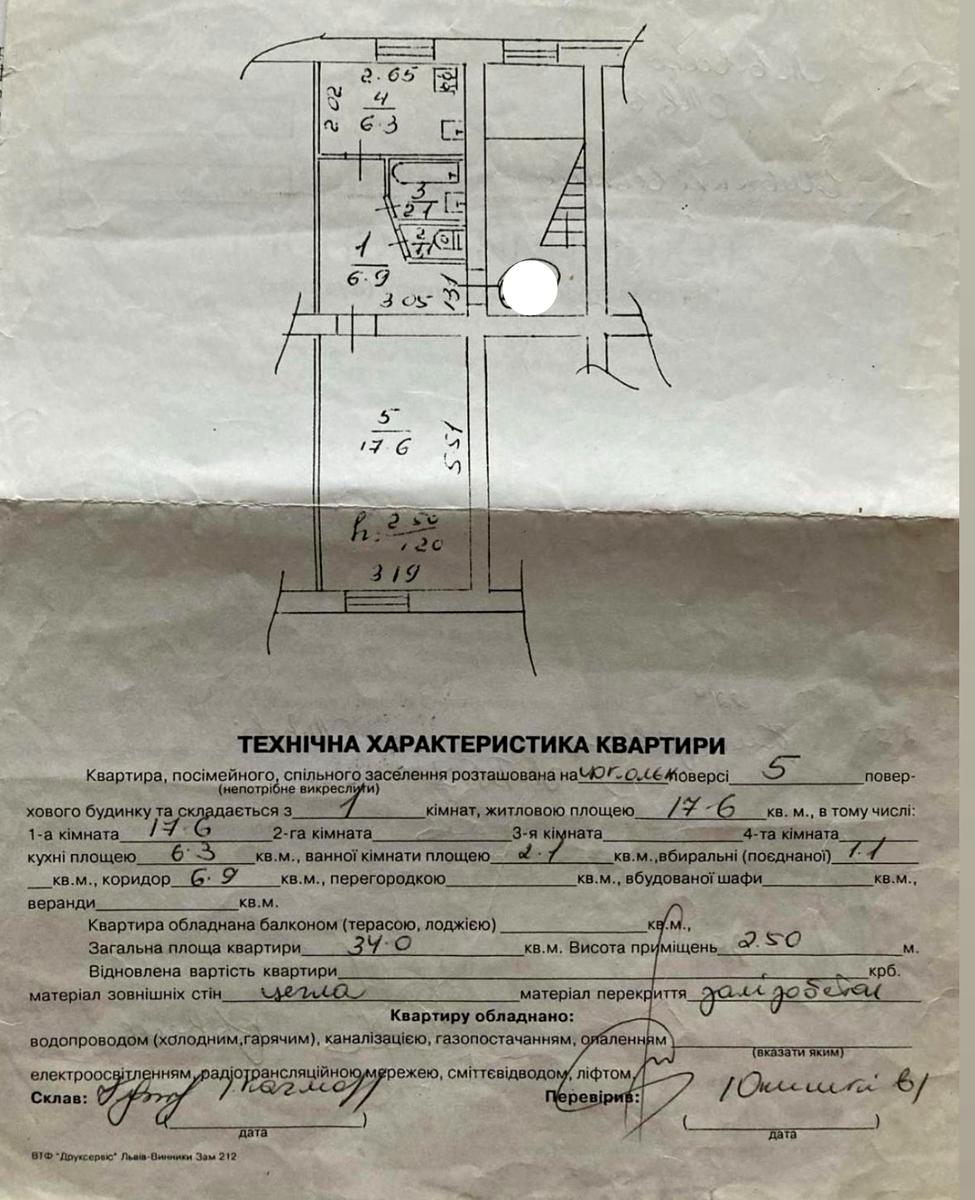 2.65
2.02
4
6.3
3
2.1
2
1.1
1
6.9
3.05
1.31
5
17.6
5.51
h: 2.50
1.20
3.19
ТЕХНІЧНА ХАРАКТЕРИСТИКА КВАРТИРИ
Квартира, посімейного, спільного заселення розташована на поверсі 5 повер-
(непотрібне викреслити)
хового будинку та складається з 1 кімнат, житловою площею 17.6 кв. м., в тому числі:
1-а кімната 17.6 2-га кімната 3-я кімната 4-та кімната
кухні площею 6.3 кв.м., ванної кімнати площею 2.1 кв.м.,вбиральні (поєднаної) 1.1
кв.м., коридор 6.9 кв.м., перегородкою кв.м., вбудованої шафи кв.м.,
веранди кв.м.
Квартира обладнана балконом (терасою, лоджією) кв.м.,
Загальна площа квартири 34.0 кв.м. Висота приміщень 2.50 м.
Відновлена вартість квартири крб.
матеріал зовнішніх стін цегла матеріал перекриття залізобетон
Квартиру обладнано:
водопроводом (холодним,гарячим), каналізацією, газопостачанням, опаленням
(вказати яким)
електроосвітленням, радіотрансляційною мережею, сміттєвідводом, ліфтом
Склав: Перевірив:
( ) ( )
дата дата
ВТФ "Друксервіс" Львів-Винники Зам 212